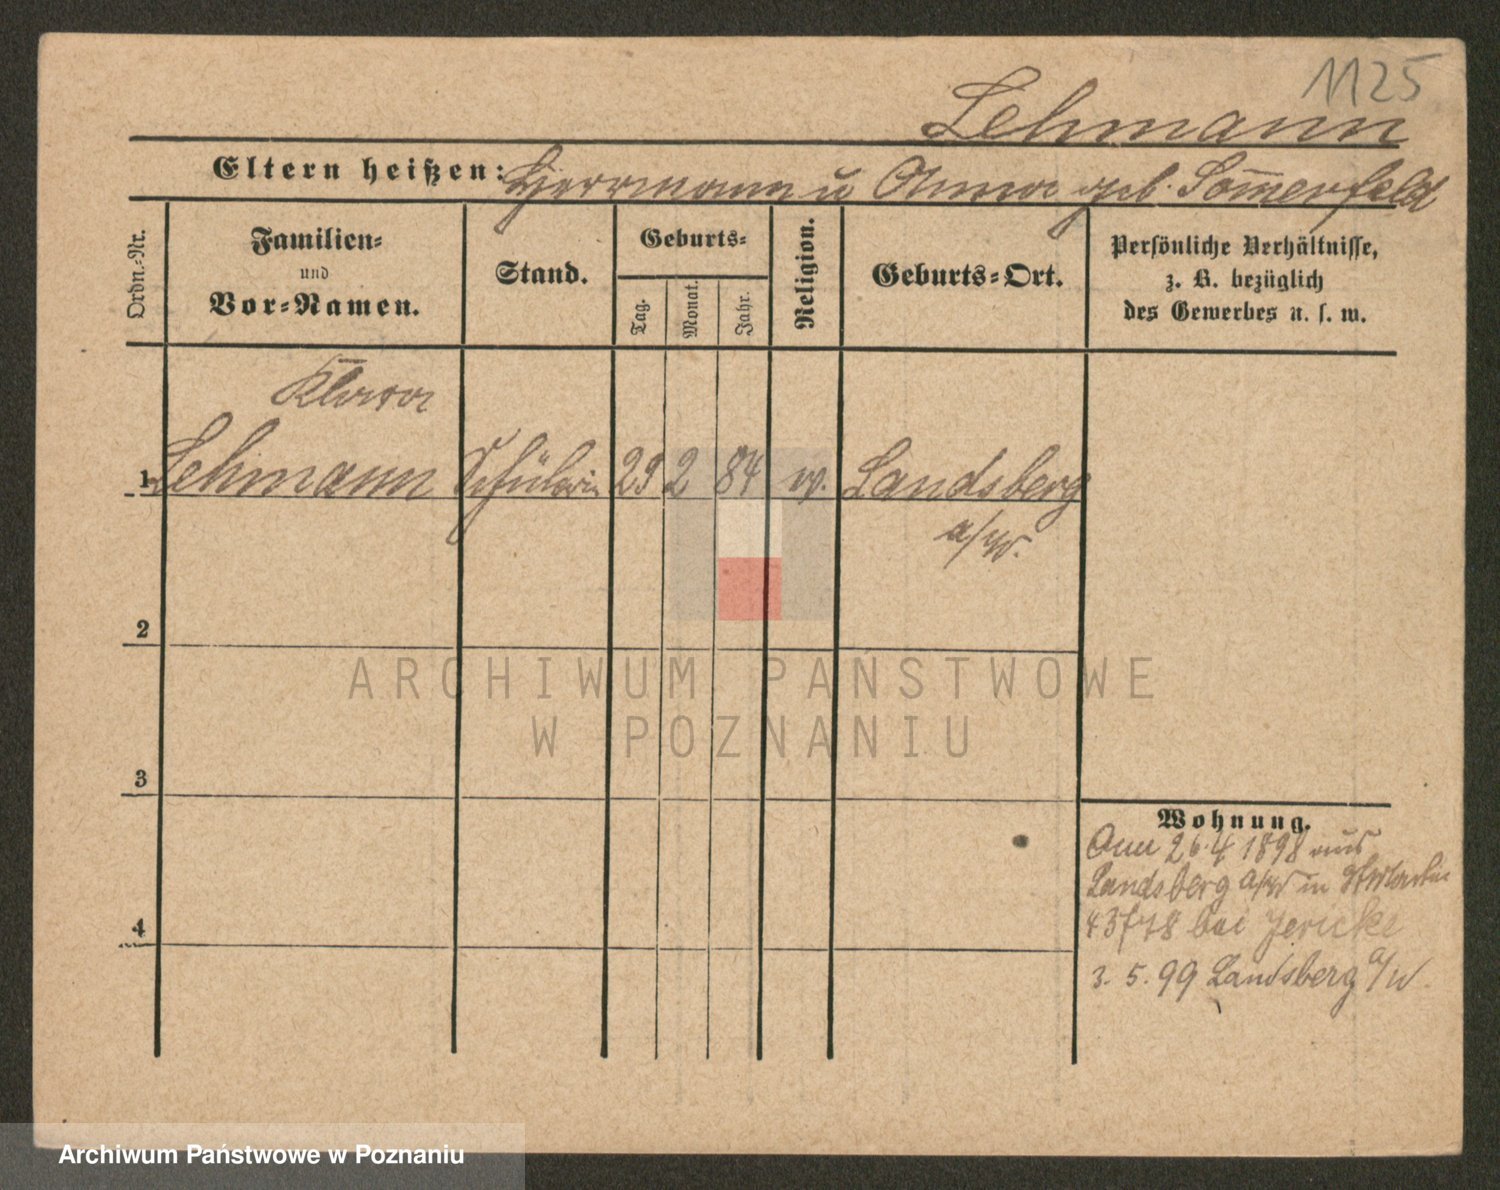 1125
Lehmann
Eltern heißen: Herrmann u Anna geb. Sommerfeld
Ordn.-Nr.
Familien-
und
Vor-Namen.
Stand.
Geburts-
Tag.
Monat.
Jahr.
Religion.
Geburts-Ort.
Persönliche Verhältnisse,
z. B. bezüglich
des Gewerbes u. s. w.
Klara
1 Lehmann Schülerin 29 2 84 ev. Landsberg
a/W.
2
ARCHIWUM PAŃSTWOWE
W POZNANIU
3
Wohnung.
Am 26.4 1898 aus
Landsberg a/W in
bei Jericke
4
3. 5. 99 Landsberg a/W.
Archiwum Państwowe w Poznaniu